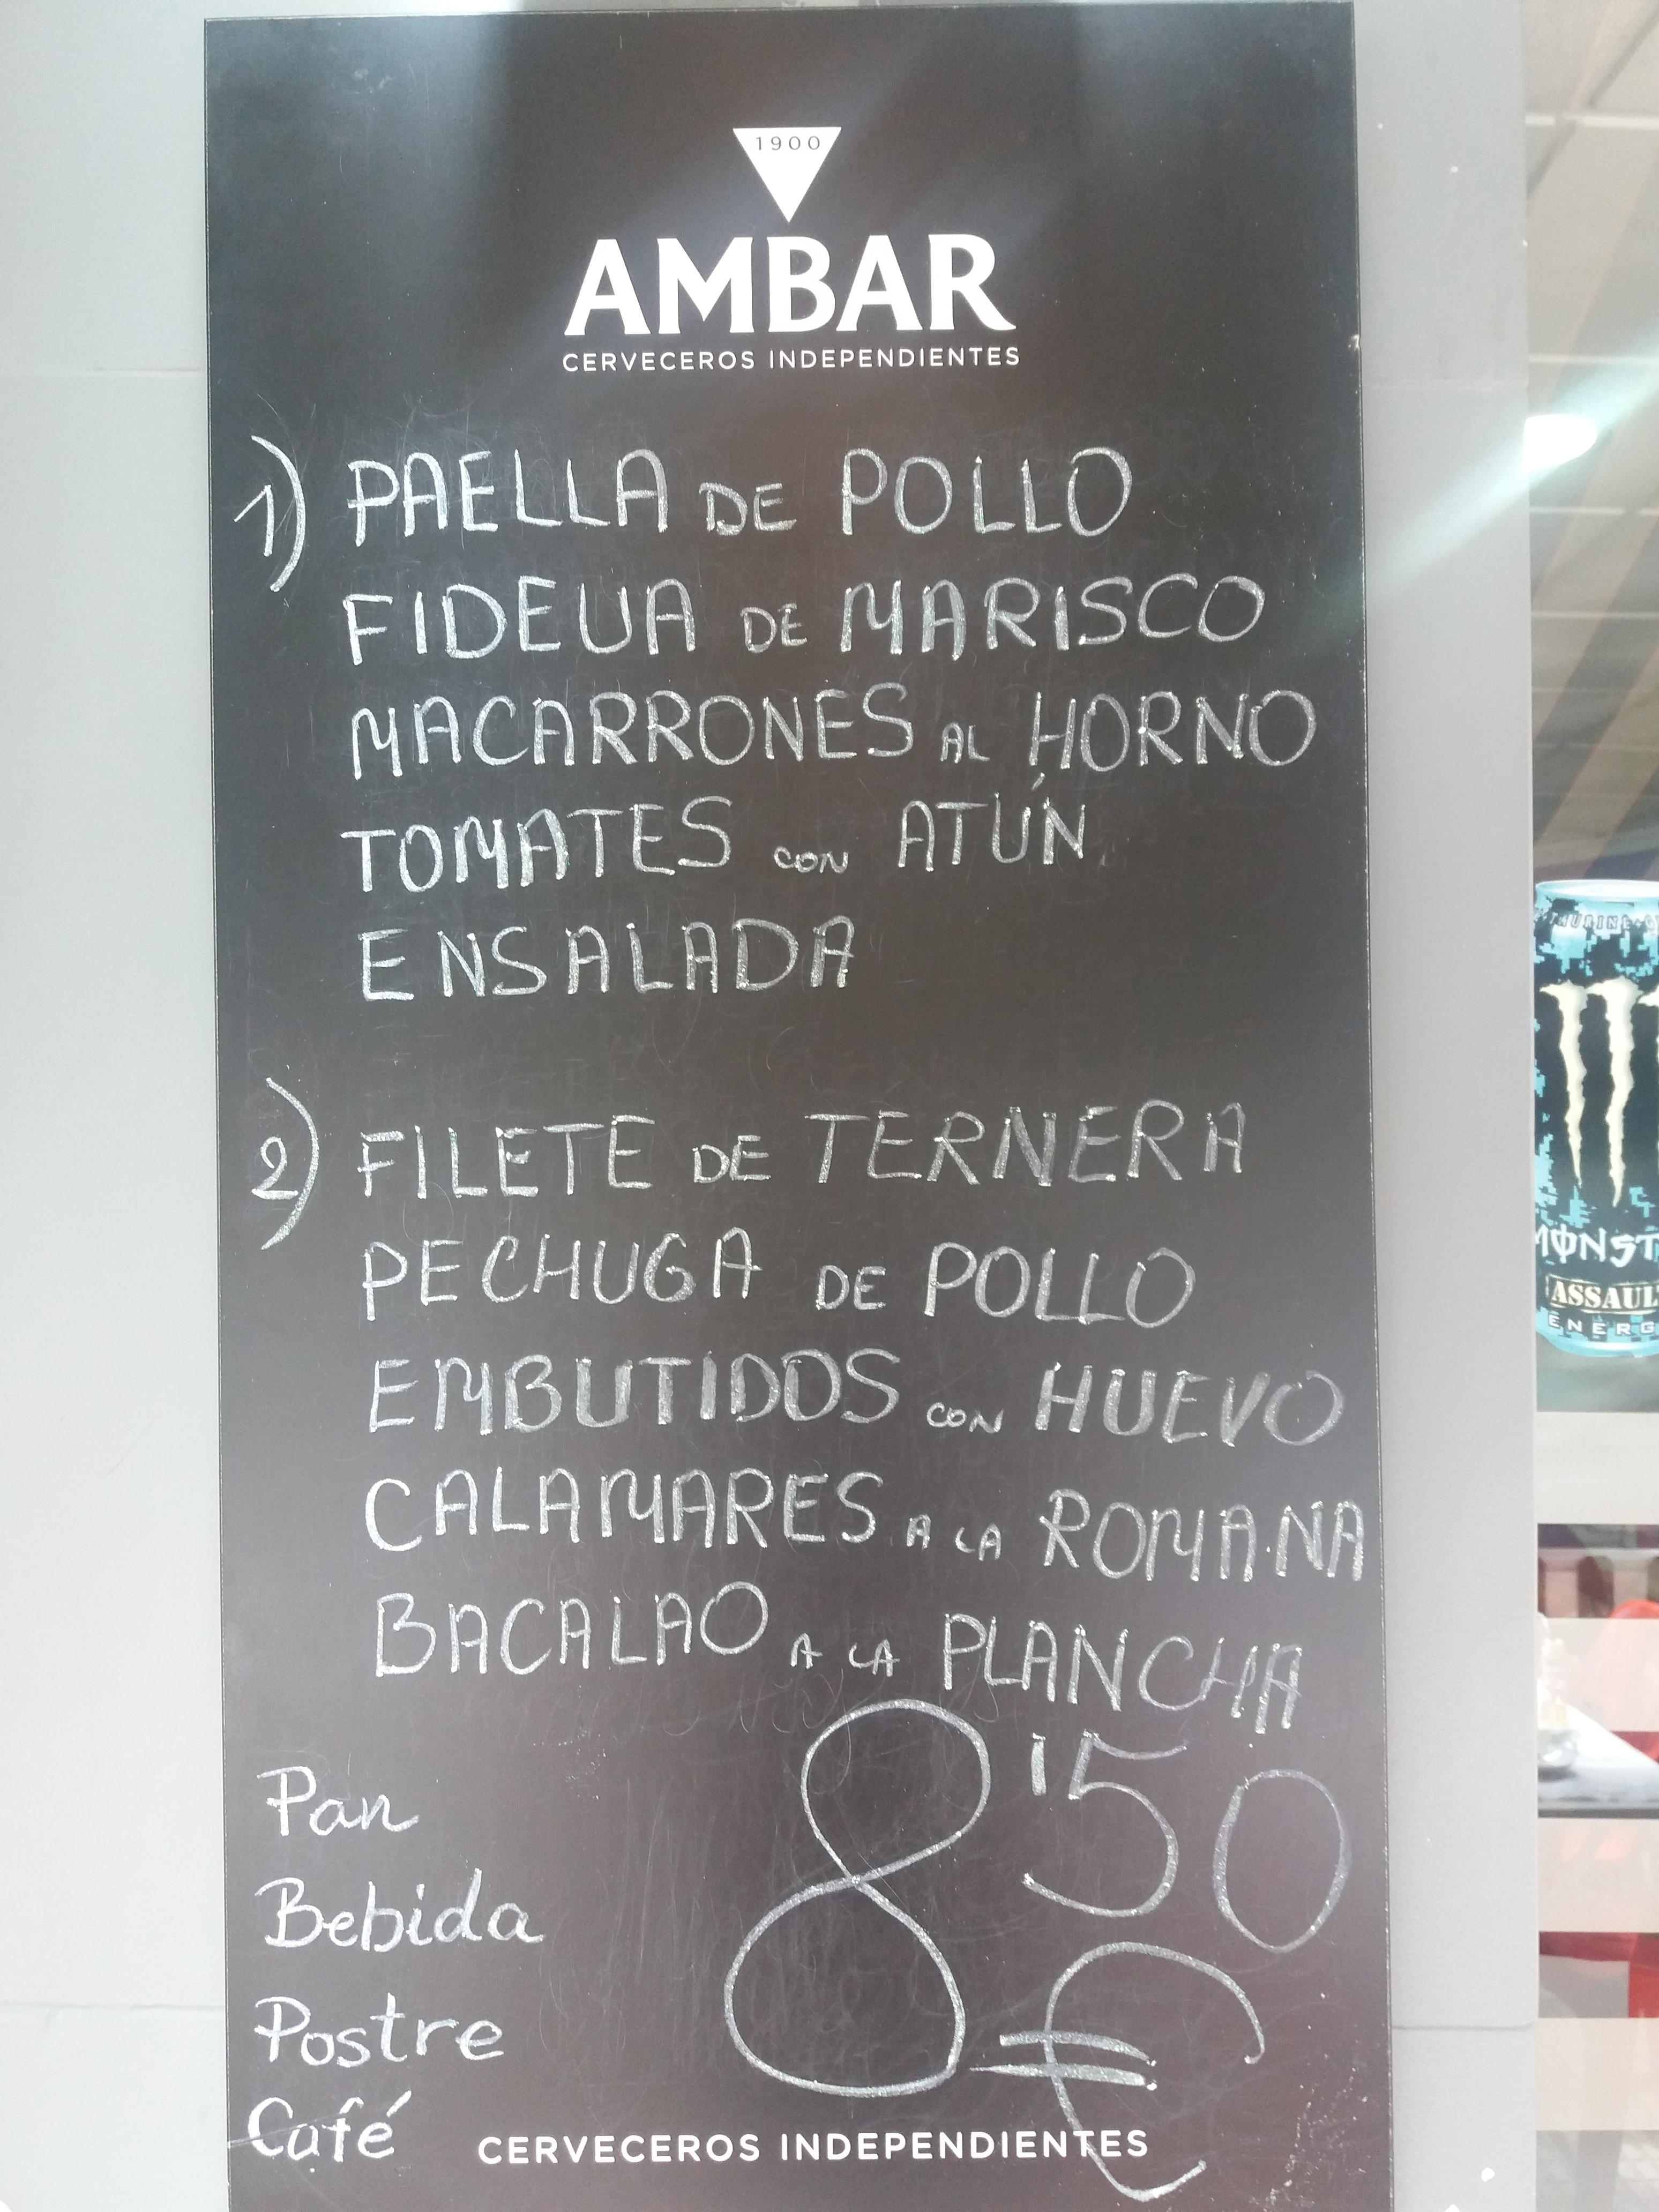 1900
AMBAR
CERVECEROS INDEPENDIENTES
1) PAELLA DE POLLO
FIDEUA DE MARISCO
MACARRONES AL HORNO
TOMATES CON ATÚN
ENSALADA
2) FILETE DE TERNERA
PECHUGA DE POLLO
EMBUTIDOS CON HUEVO
CALAMARES A LA ROMANA
BACALAO A LA PLANCHA
8'50 €
Pan
Bebida
Postre
Café
CERVECEROS INDEPENDIENTES
MONST
ASSAUL
ENERG